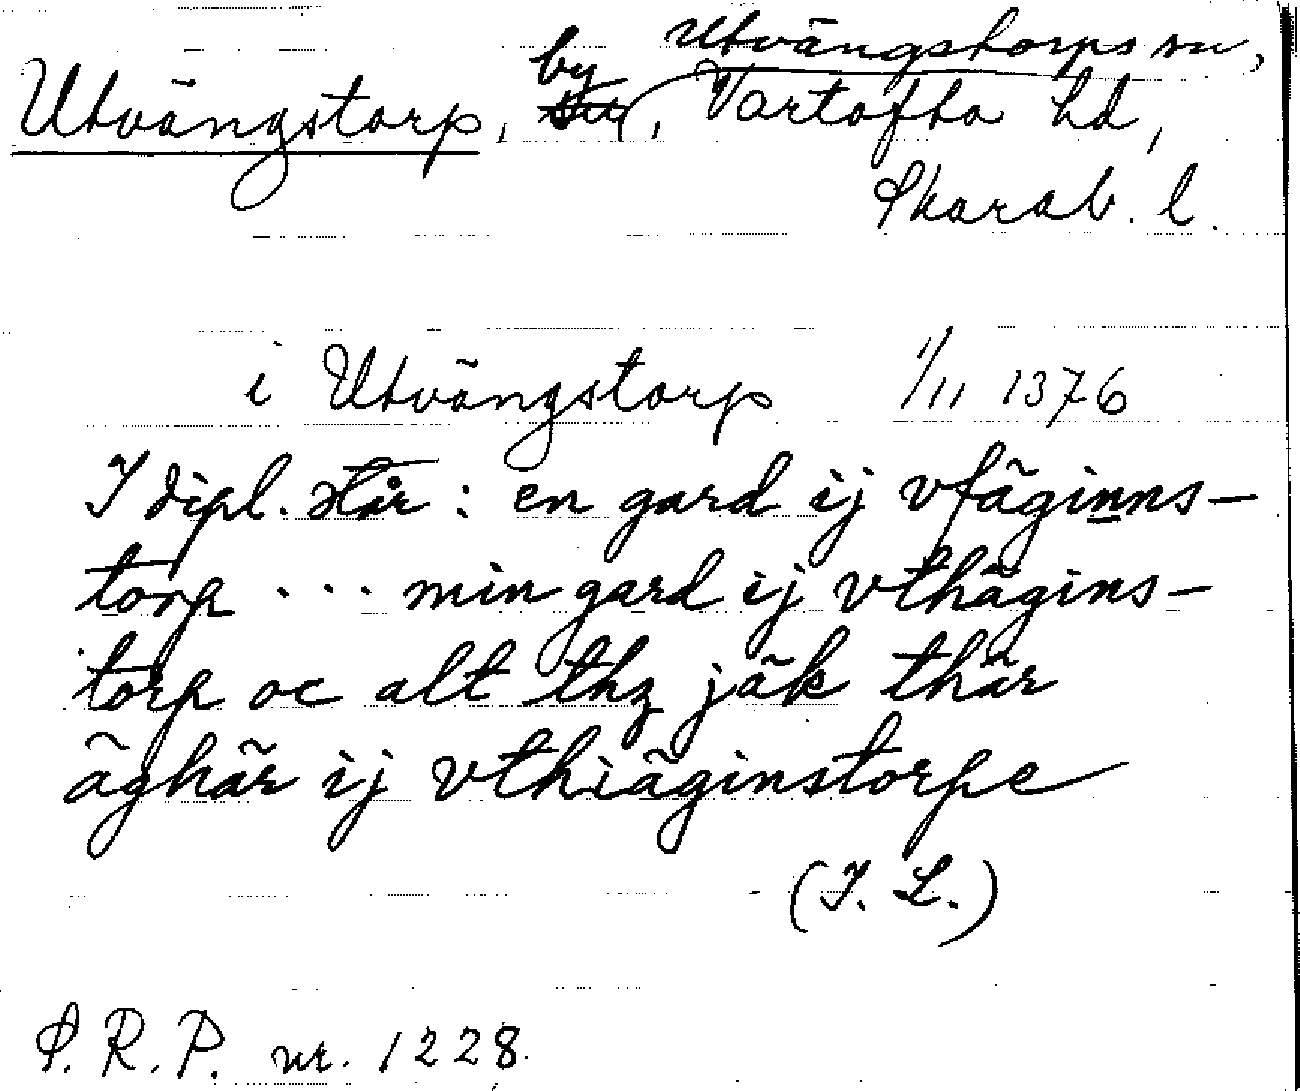 Utvängstorps sn,
Utvängstorp, by, Vartofta hd,
Skarab. l.
i Utvängstorp 1/11 1376
I dipl. står: en gard ij vfäginns-
torp ... min gard ij vthägins-
torp oc alt thz jäk thär
äghär ij vthiäginstorpe
(I. L.)
S. R. P. nr. 1228.